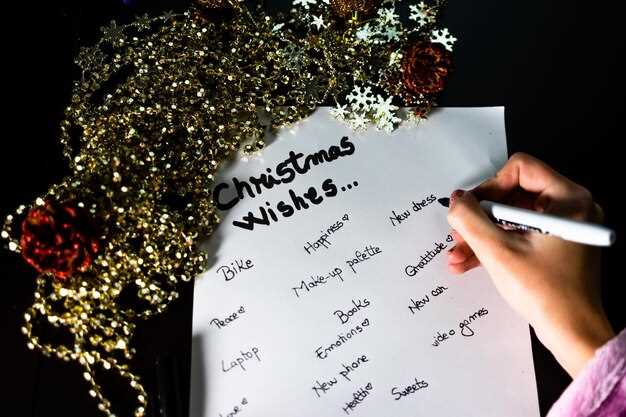 Christmas
Wishes...
Bike
Peace ♡
Laptop
love ♡
Happiness ♡
Make-up palette
Books
Emotions ♡
New phone
Health ♡
New dress
Gratitude ♡
New car
video games
Sweets